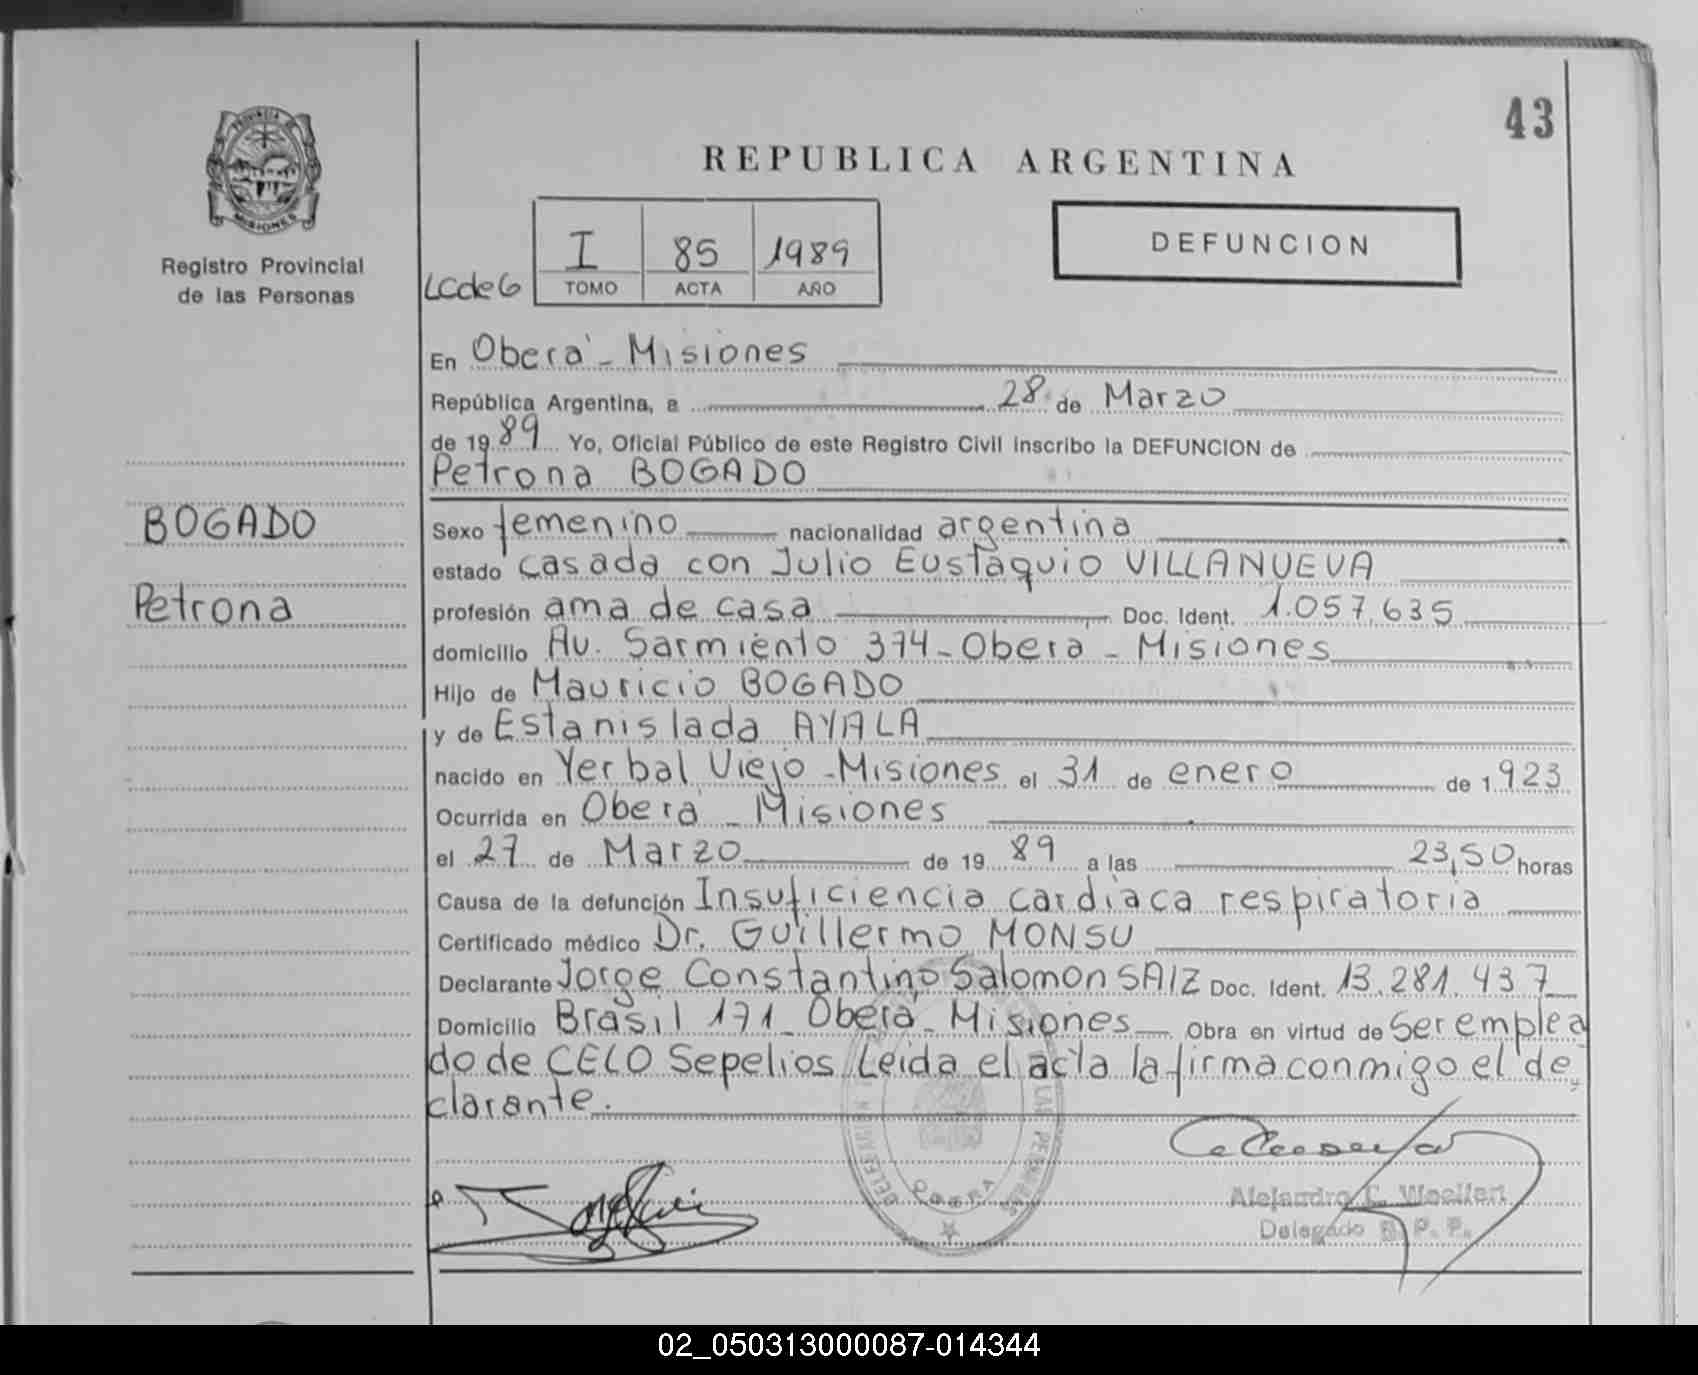 43
REPUBLICA ARGENTINA
PROVINCIA DE
MISIONES
Registro Provincial
de las Personas
DEFUNCION
I 85 1989
LCde6 TOMO ACTA AÑO
En Oberá - Misiones
República Argentina, a 28 de Marzo
de 1989 Yo, Oficial Público de este Registro Civil inscribo la DEFUNCION de
Petrona BOGADO
BOGADO
Petrona
Sexo femenino nacionalidad argentina
estado casada con Julio Eustaquio VILLANUEVA
profesión ama de casa Doc. Ident. 1.057.635
domicilio Av. Sarmiento 374 - Oberá - Misiones
Hijo de Mauricio BOGADO
y de Estanislada AYALA
nacido en Yerbal Viejo - Misiones el 31 de enero de 1.923
Ocurrida en Oberá - Misiones
el 27 de Marzo de 19 89 a las 23,50 horas
Causa de la defunción Insuficiencia cardiaca respiratoria
Certificado médico Dr. Guillermo MONSU
Declarante Jorge Constantino Salomon SAIZ Doc. Ident. 13.281.437
Domicilio Brasil 171 - Oberá - Misiones Obra en virtud de ser emplea
do de CELO Sepelios Leida el acta la firma conmigo el de
clarante.
OBERA
Delegado R. P. P.
02_050313000087-014344